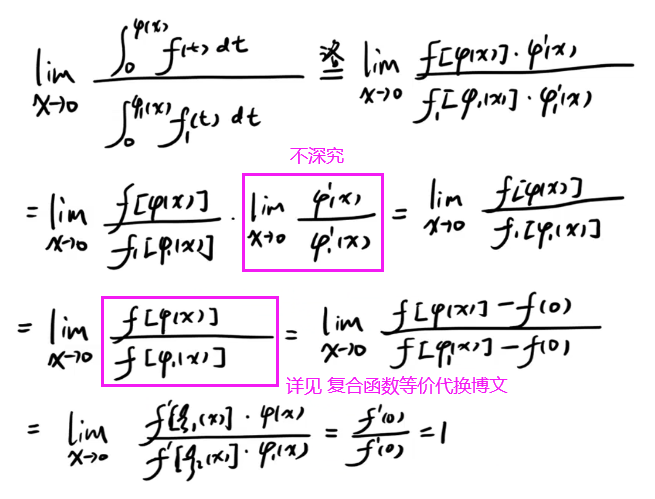 lim_{x→0} \frac{∫_0^{φ(x)} f(t) dt}{∫_0^{φ_1(x)} f_1(t) dt} 洛= lim_{x→0} \frac{f[φ(x)]·φ'(x)}{f_1[φ_1(x)]·φ_1'(x)}
不深究
= lim_{x→0} \frac{f[φ(x)]}{f_1[φ_1(x)]} · lim_{x→0} \frac{φ'(x)}{φ_1'(x)} = lim_{x→0} \frac{f[φ(x)]}{f_1[φ_1(x)]}
= lim_{x→0} \frac{f[φ(x)]}{f[φ_1(x)]} = lim_{x→0} \frac{f[φ(x)]-f(0)}{f[φ_1(x)]-f(0)}
详见 复合函数等价代换博文
= lim_{x→0} \frac{f'[ξ_1(x)]·φ(x)}{f'[ξ_2(x)]·φ_1(x)} = \frac{f'(0)}{f'(0)} = 1